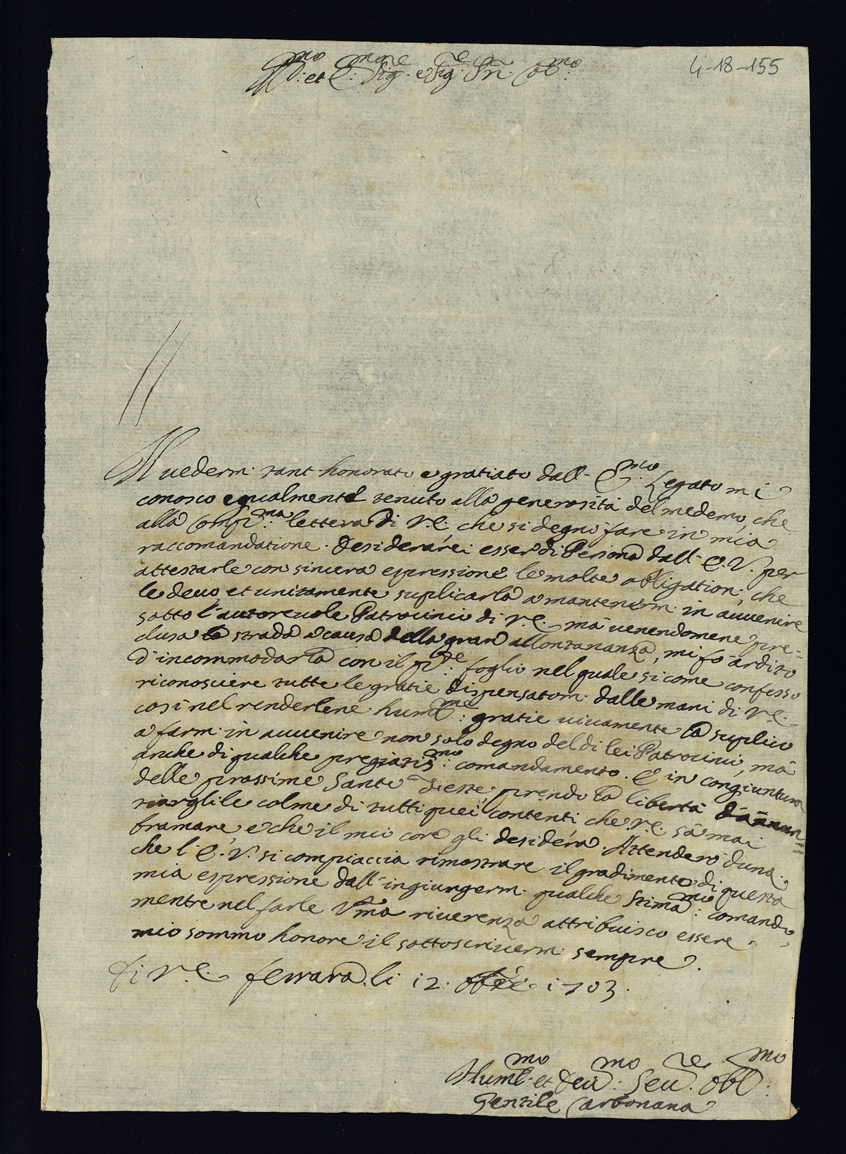 4-18-155
Ill.mo et Ecc.mo Sig.re e Sig.re Pñ. Ob.mo
Il uederm. tant' honorato e gratiato dall' E.mo Legato mi
conosco egualmente tenuto alla generosità del medemo, che
alla Confi.ma lettera di V.E. che si degnò fare in mia
raccomandatione. Desiderarei esser di Persona dall' E.V. per
attestarle con sincera espressione le molte obligation. che
le deuo et unitamente suplicarla a mantenerm. in auuenire
sotto l'autoreuole Patrocinio di V.E. mà uenendomene pre=
clusa la strada a causa della gran allontananza, mi fo ardito
d'incommodarla con il p.nte foglio nel quale si come confesso
riconosciere tutte le gratie dispensatom. dalle mani di V.E.
cosi nel renderlene humil.me gratie uiuamente la suplico
a farm. in auuenire non solo degno del di lei Patrocinio, mà
anche di qualche pregiatis.mo comandamento. E in congiuntura
delle prossime Sante Feste prendo la libertà d'annun=
tiargli le colme di tutti quei contenti che V.E. sà mai
bramare e che il mio core gli desidera. Attenderò duna.
che l'E.V. si compiaccia rimostrare il gradimento di questa
mia espressione dall' ingiungerm. qualche Stima.mo comando,
mentre nel farle Vma riuerenza attribuisco essere
mio sommo honore il sottoscriuerm. sempre.
Di V.E. Ferrara li 12 Xbre 1703.
Humil.mo et Deu.mo Seu.re Obl.mo
Gentile Carbonana